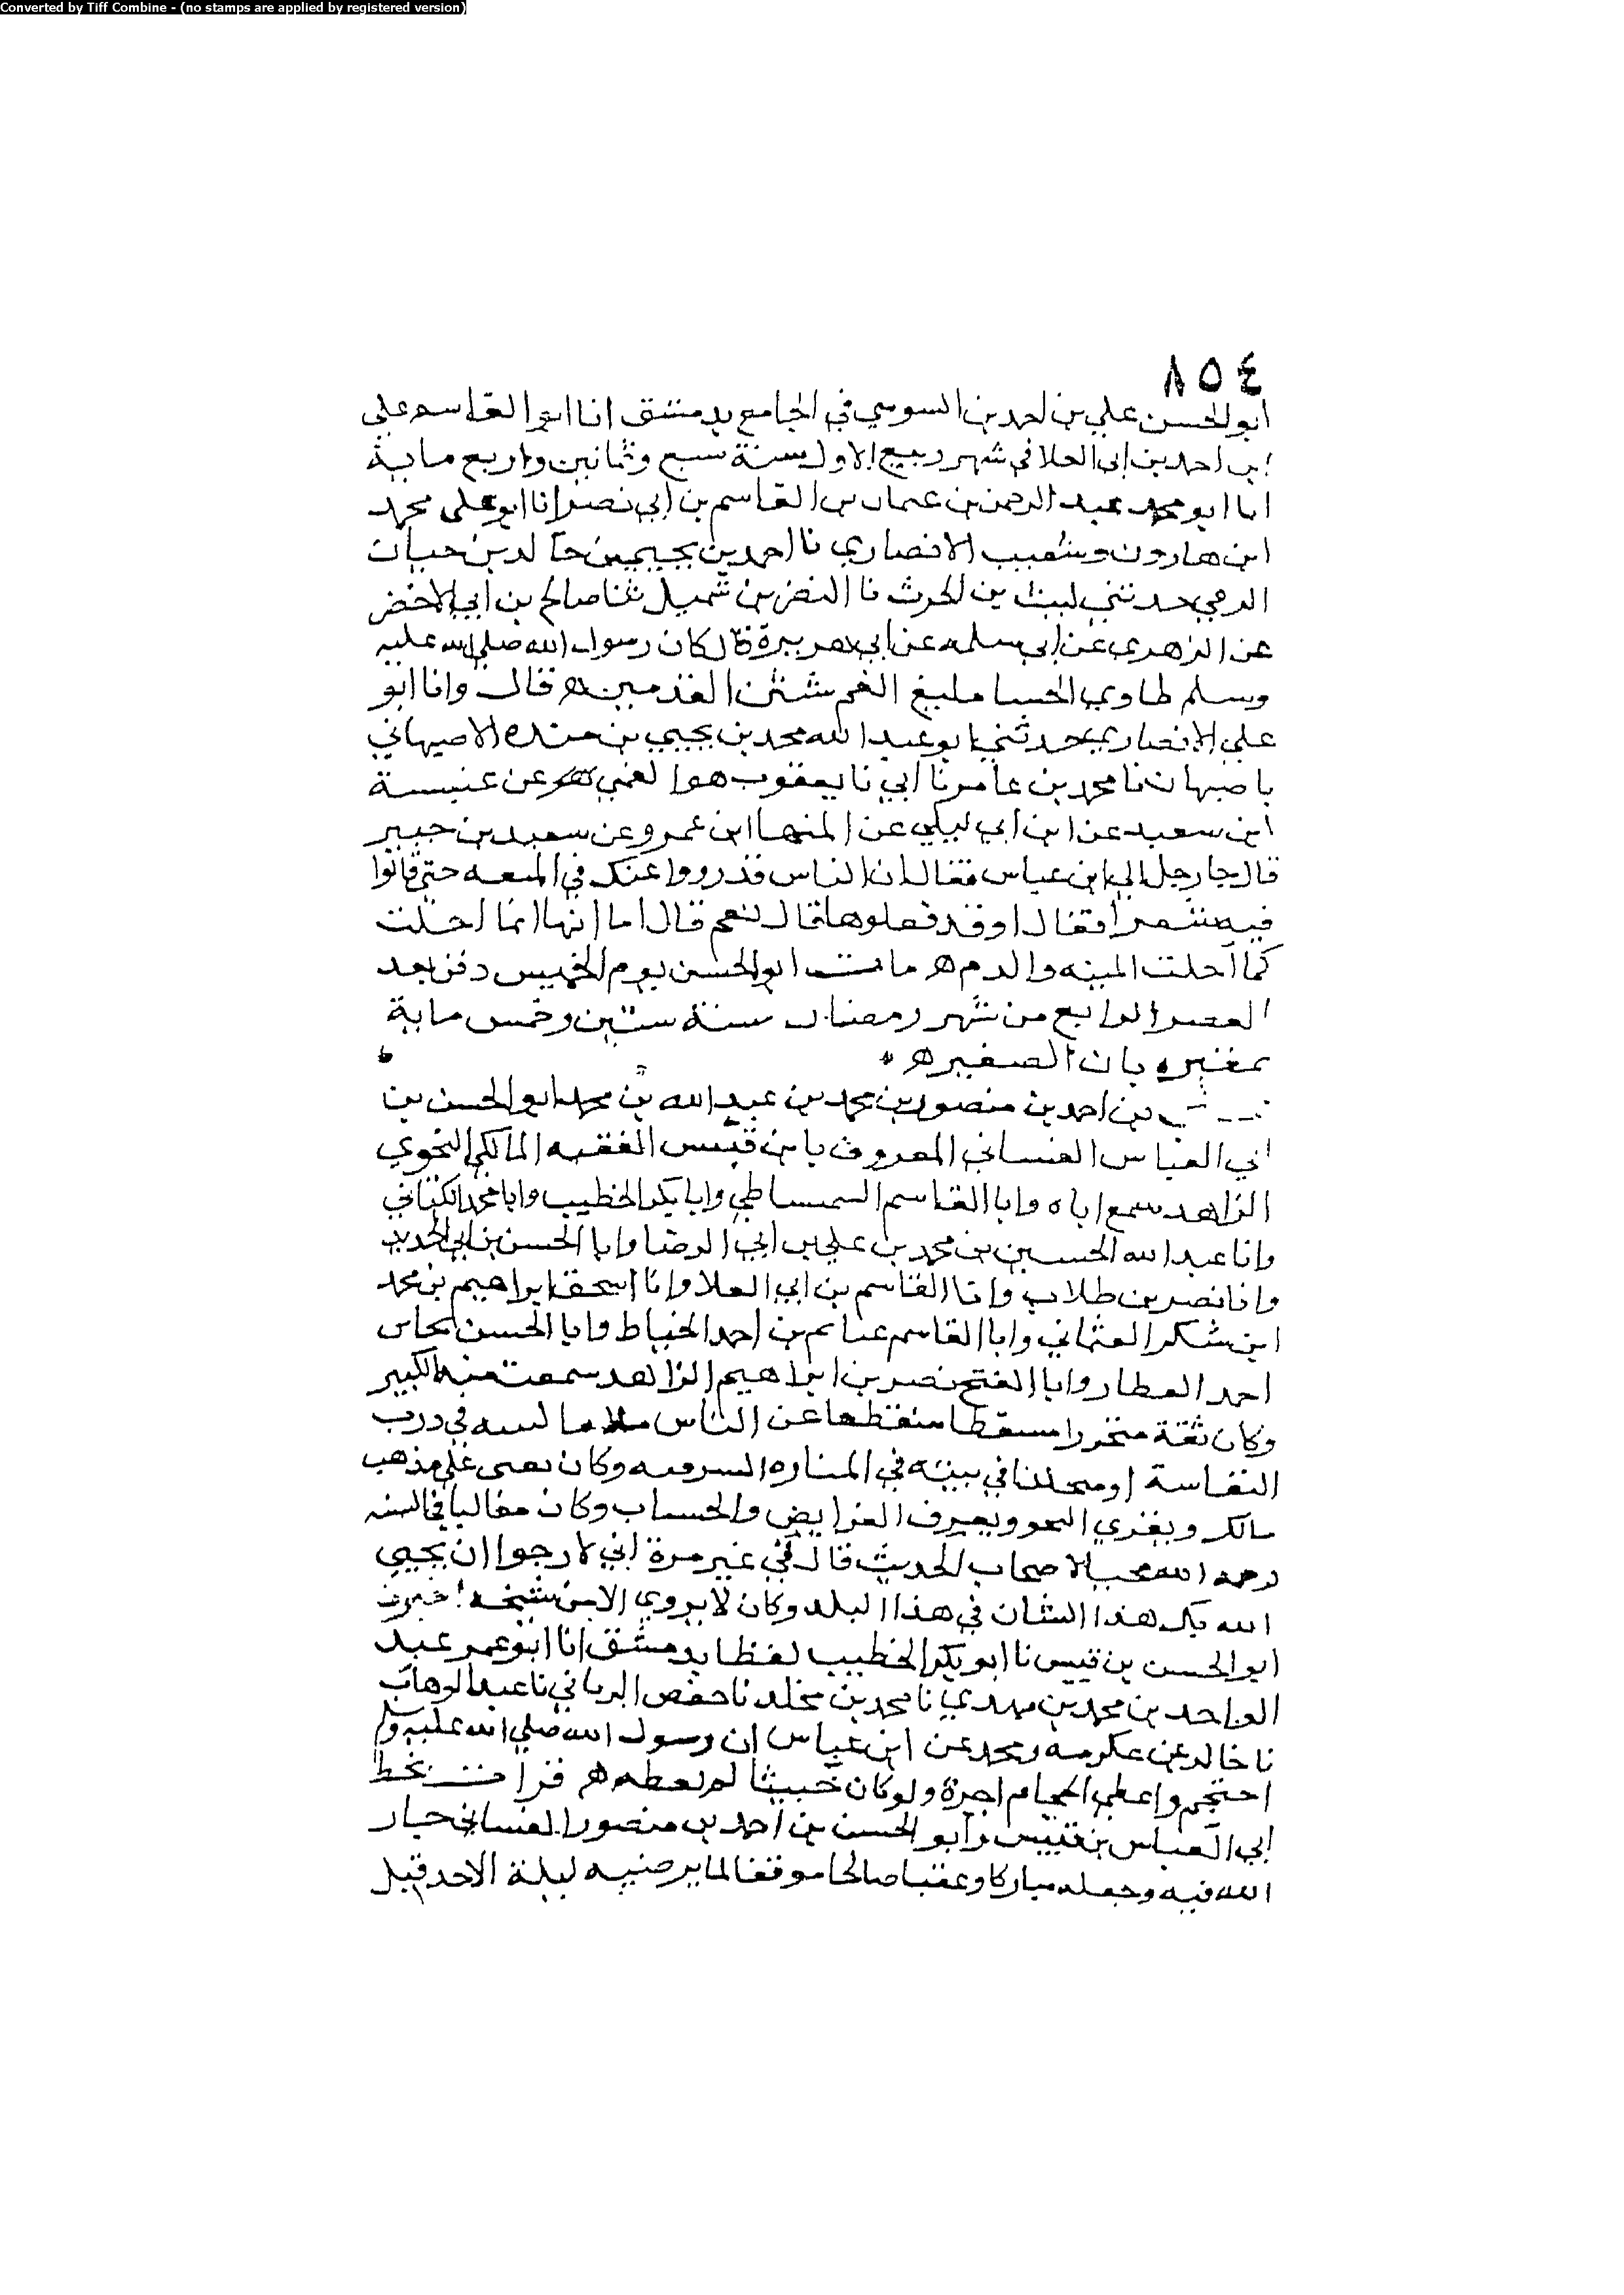 Converted by Tiff Combine - (no stamps are applied by registered version)
٨٥٤
ابو الحسن علي بن احمد بن السوسي في الجامع بدمشق انا ابو القاسم علي
ابن احمد بن ابي العلا في شهر ربيع الاول سنة سبع وثمانين واربع ماية
انا ابو محمد عبد الرحمن بن عثمان بن القاسم بن ابي نصر انا ابو علي محمد
ابن هارون وشعيب الانصاري نا احمد بن يحيى بن خالد بن حيان
الرقي حدثني ليث بن الحرث نا النضر بن شميل ثنا صالح بن ابي الاخضر
عن الزهري عن ابي سلمه عن ابي هريرة قال كان رسول الله صلى الله عليه
وسلم طاوي الحسا مليغ الفم شثن القدمين ه قال وانا ابو
علي الانصاري حدثني ابو عبد الله محمد بن يحيي بن منده الاصبهاني
باصبهان نا محمد بن عامر نا ابي نا يعقوب هوا لعمي عن عنبسة
ابن سعيد عن ابن ابي ليلي عن المنها ابن عمرو عن سعيد بن جبير
قال جا رجل الي ابن عباس فقال ان الناس قد رووا عنك في المتعه حتى قالوا
فيه شعرا فقال اوقد فعلوها قال نعم قال اما انها انما احلت
كما احلت الميته والدم ه مات ابو الحسن يوم الخميس دفن بعد
العصر الرابع من شهر رمضان سنة ستين وخمس ماية
بمقبره بان الصغير ه
بن احمد بن منصور بن محمد بن عبد الله بن محمد ابو الحسن بن
ابي العباس الغساني المعروف بابن قبيس الفقيه المالكي النحوي
الزاهد سمع اباه وابا القاسم السمساطي وابا بكر الخطيب وابا محمد الكتاني
وانا عبد الله الحسين بن محمد بن علي بن ابي الرضا وابا الحسن بن ابي الحديد
وانا نصر بن طلاب وانا القاسم بن ابي العلا وانا اسحق ابراهيم بن محمد
ابن شكر العثماني وابا القاسم غنايم بن احمد الخياط وابا الحسن نجاس
احمد العطار وابا الفتح نصر بن ابراهيم الزاهد سمعت منه الكبير
وكان ثقة متحررا متيقظا منقطعا عن الناس ملازما لبيته في درب
النقاسة او متخليا في بيته في المناره الشرقيه وكان يفتى علي مذهب
مالك ويقري النحو ويعرف الفرايض والحساب وكان مغاليا في السنه
رحمه الله محبا لاصحاب الحديث قال لي غير مرة اني لارجوا ان يحيي
الله بك هذا الشان في هذا البلد وكان لا يروي الا من نسخه اخبرنا
ابو الحسن بن قبيس نا ابو بكر الخطيب لفظا بدمشق انا ابو عمر عبد
الواحد بن محمد بن مهدي نا محمد بن مخلد نا حفص الرباني نا عبد الوهاب
نا خالد عن عكرمه ومحمد عن ابن عباس ان رسول الله صلي الله عليه وسلم
احتجم واعطي الحجام اجرة ولو كان خبيثا لم يعطه ه قرات بخط
ابي العباس بن قبيس ابو الحسن بن احمد بن منصور الغساني خار
الله فيه وجعله مباركا وعقبا صالحا موفقا لما يرضيه ليلة الاحد قبل